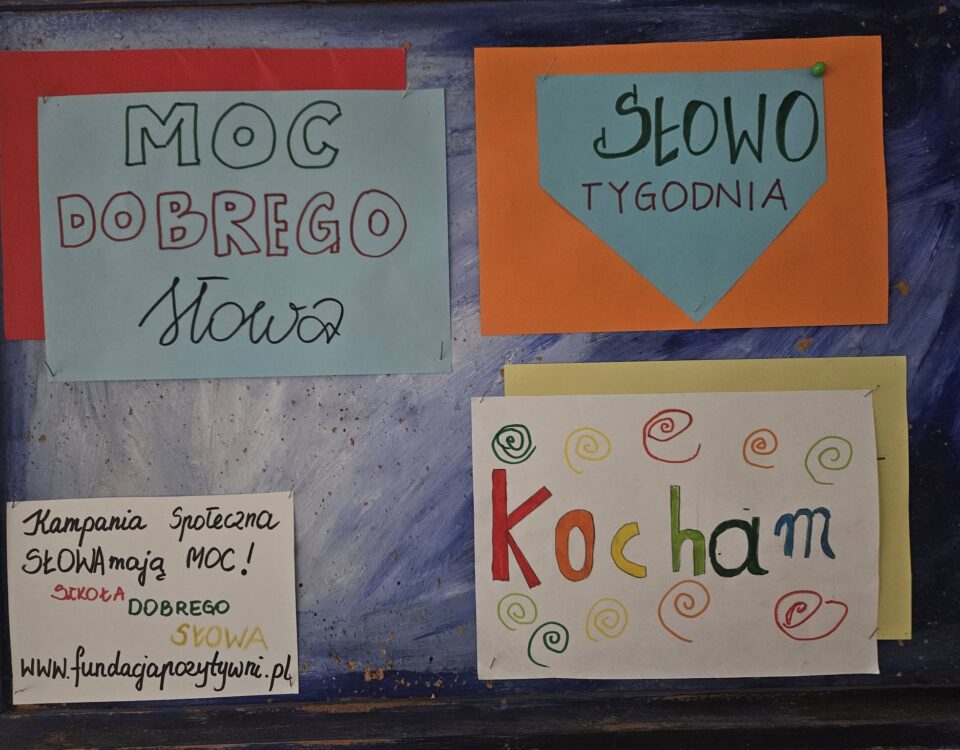 MOC
DOBREGO
słowa
SŁOWO
TYGODNIA
Kocham
Kampania Społeczna
SŁOWA mają MOC!
SZKOŁA
DOBREGO
SŁOWA
www.fundacjapozytywni.pl